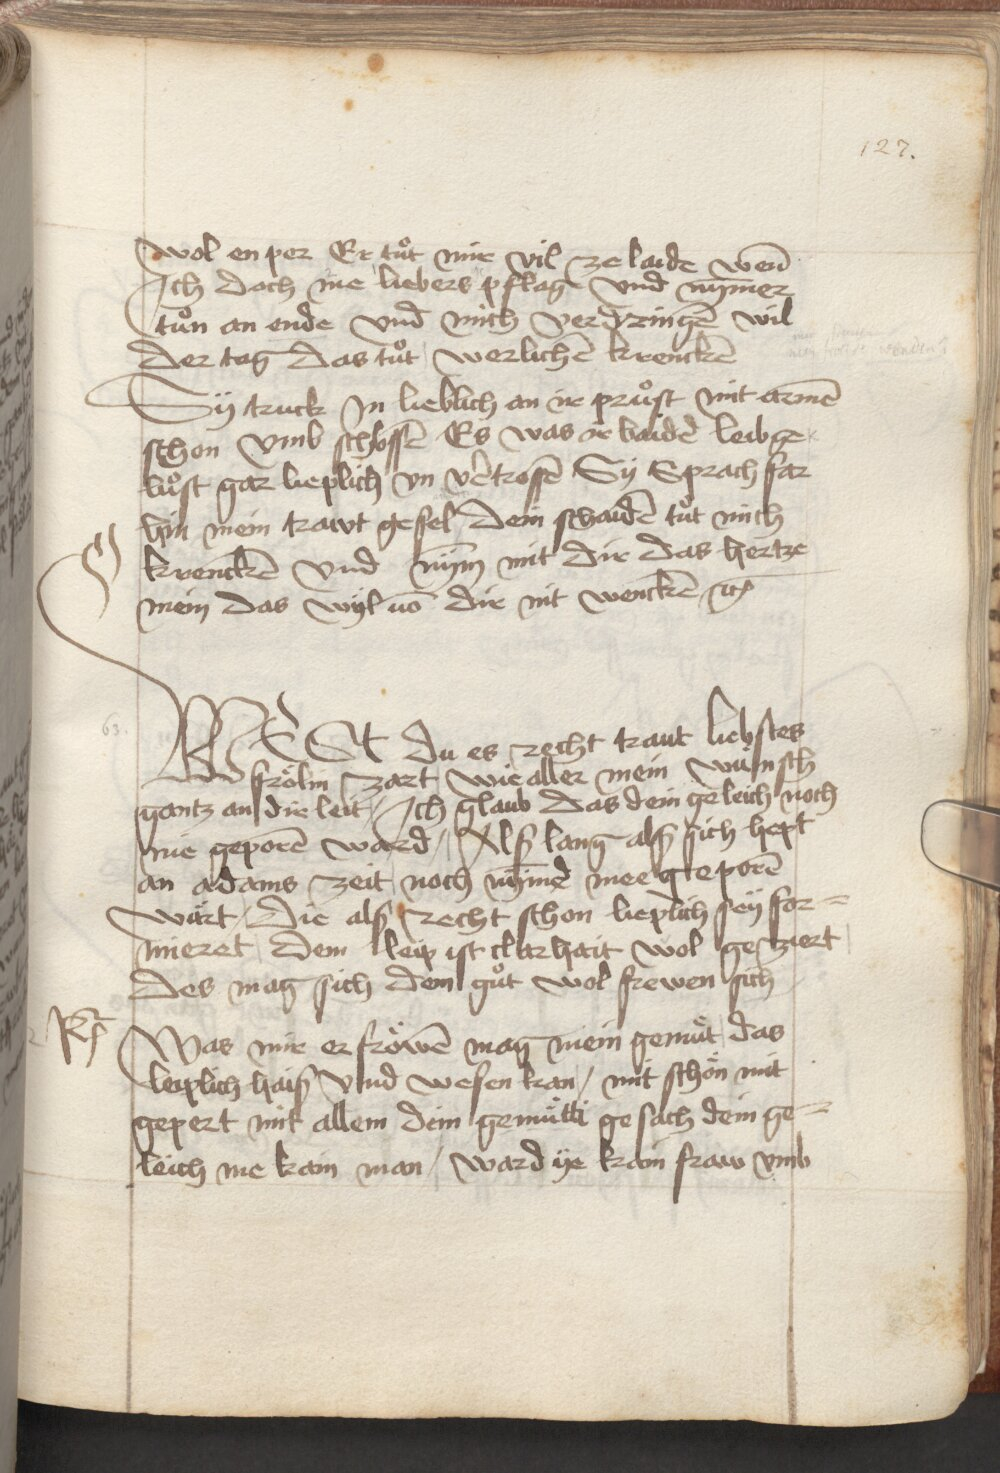 127.
wol en per Er tuͦt mir vil ze laide wen̄
Ich doch nie liebers pflag vnd nyͤmer
tuͦn an ende vnd mich verdringen̄ wil
der tag das tuͦt werlichen̄ krencken̄
Sy truck In lieblich an ir pruͦst mit armen̄
schon vmb schlossen̄ Es was ir baiden̄ leib ge
luͦst gar lieplich vn v̄trossen̄ Sy Sprach far
hin mein trawt gesel dein schaiden̄ tuͦt mich
krencken̄ vnd nym̄ mit dir das hertze
mein das wyl vō dir nit wencken̄ etc
63.
WESt du es recht traut liebstes
frölin zart wie aller mein wünsch
gantz an dir leit / Ich glaub das dein geleich noch
nie geporen̄ ward / Als lang als sich hept
an adams zeit noch nyͤmer mee geporen̄
wärt / Die als recht schon lieplich sey for=
mieret dem leip ist clarhait wol geziert
des mag sich dem guͦt wol frewen sich
Rͥ Was mir erfröwen̄ mag mein gemüt das
leiplich haiß vnd wesen kan / mit schön mit
gepert mit allem dim gemütti gesach dein ge=
leich nie kain man / ward ye kain fraw vmb